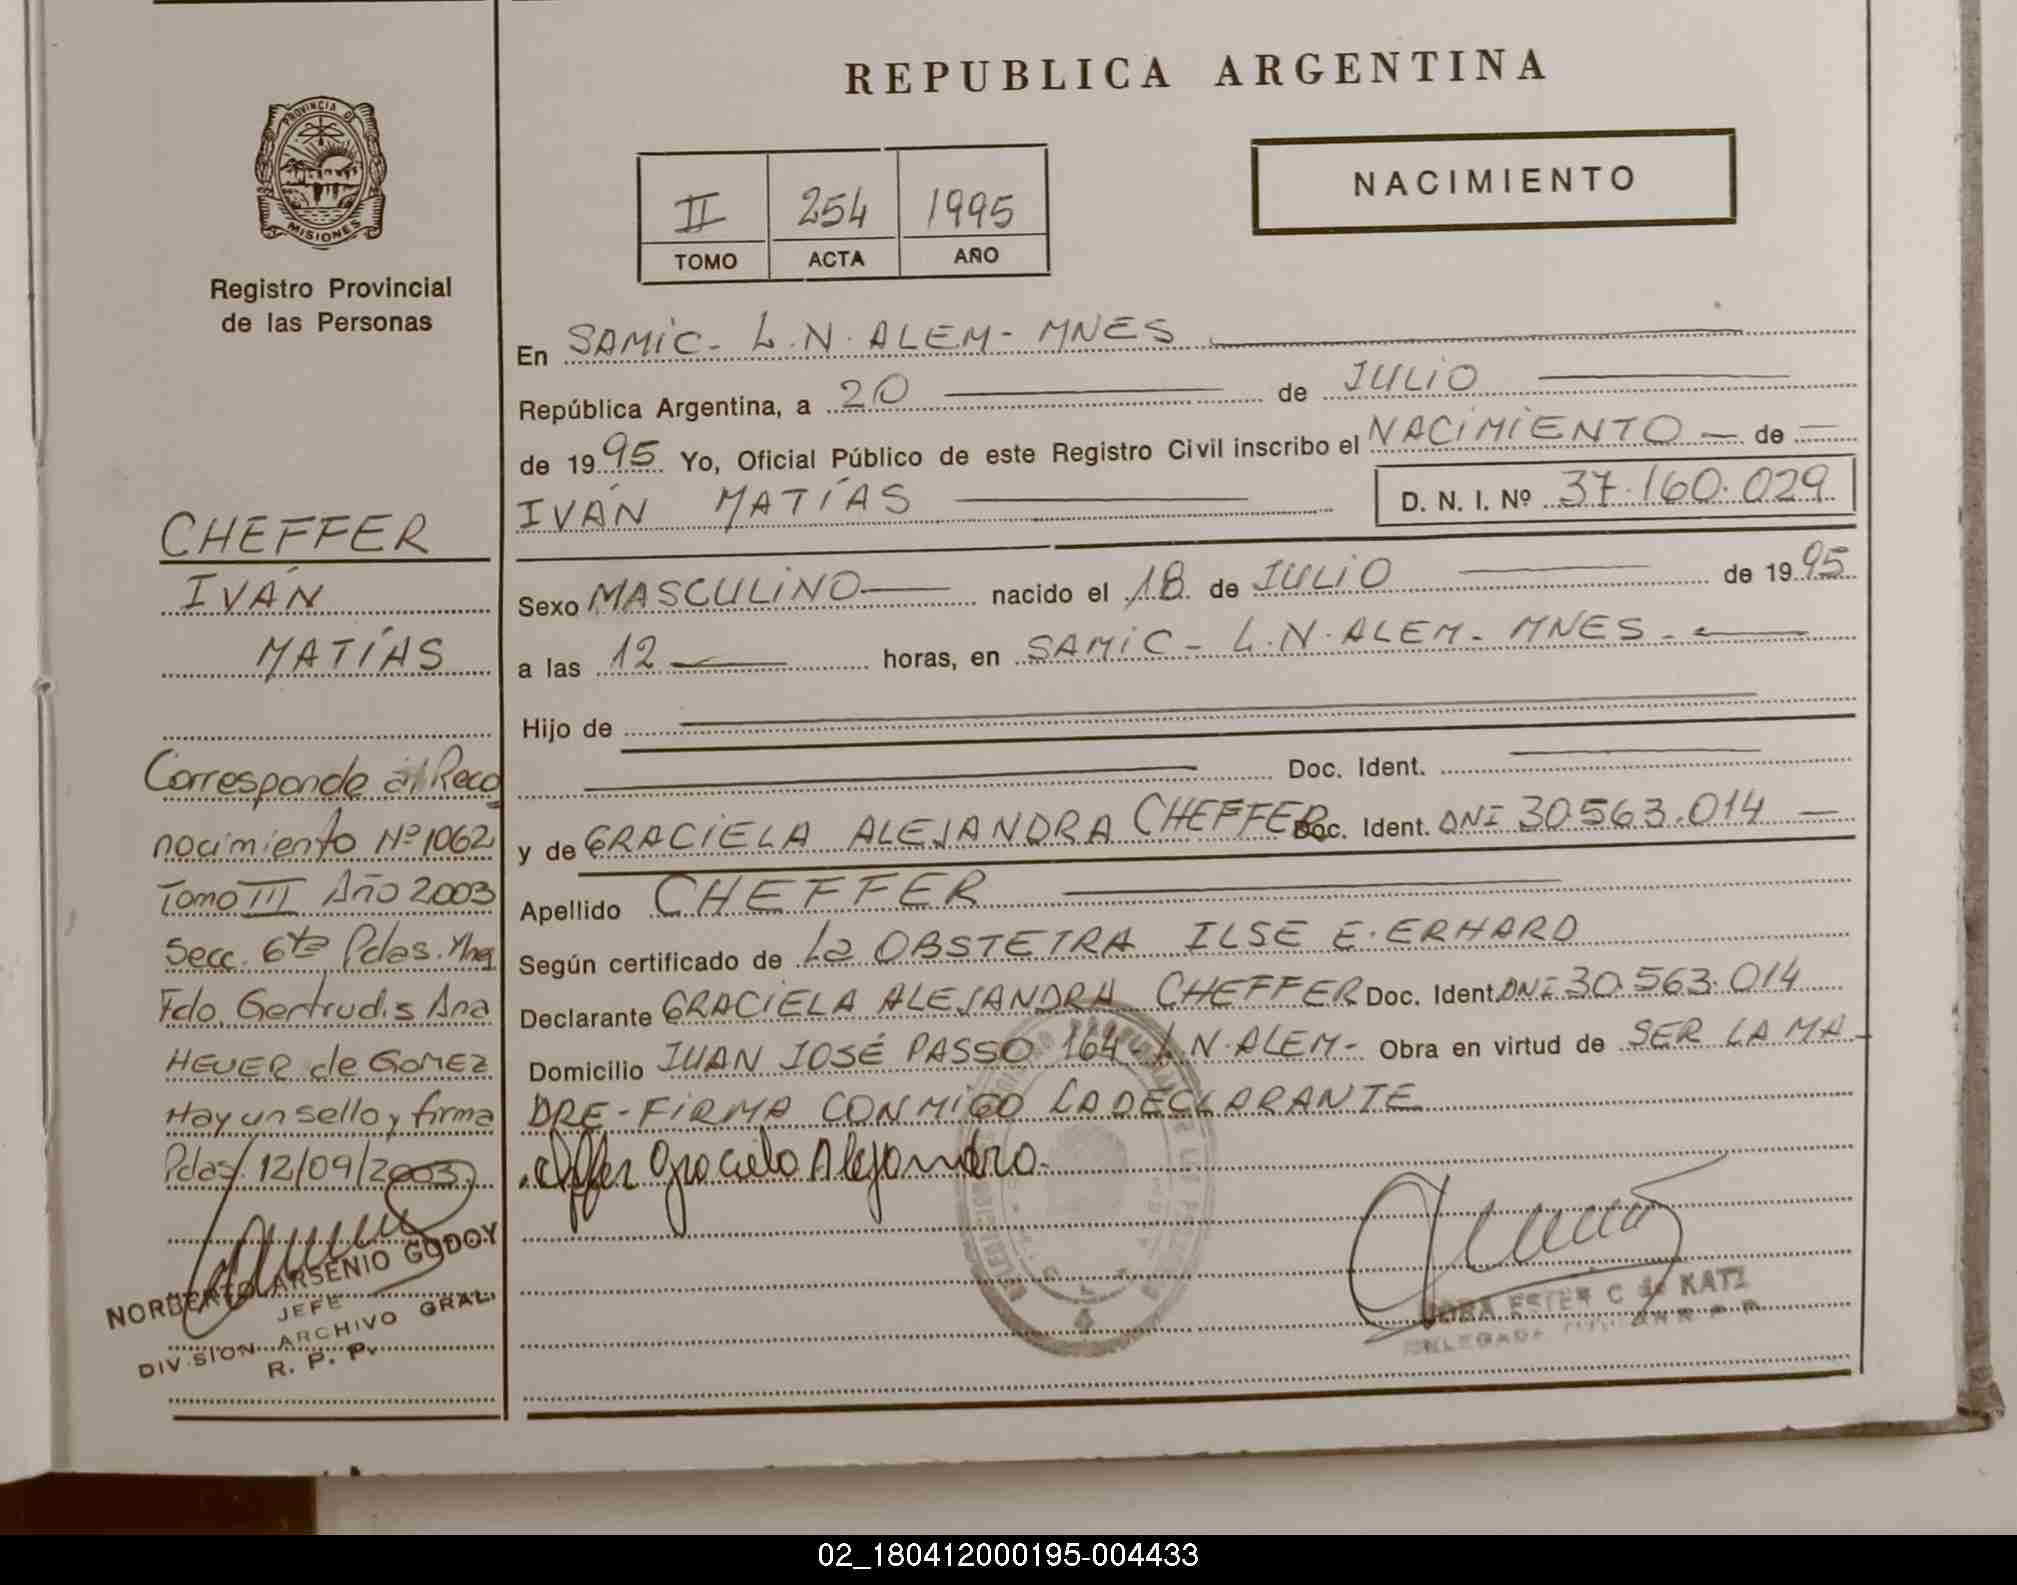 REPUBLICA ARGENTINA
PROVINCIA DE
MISIONES
Registro Provincial
de las Personas
NACIMIENTO
II 254 1995
TOMO ACTA AÑO
En SAMIC - L.N. ALEM - MNES
República Argentina, a 20 de JULIO
de 1995 Yo, Oficial Público de este Registro Civil inscribo el NACIMIENTO de
IVÁN MATÍAS D. N. I. Nº 37.160.029
Sexo MASCULINO nacido el 18 de JULIO de 1995
a las 12 horas, en SAMIC - L.N. ALEM - MNES -
Hijo de
Doc. Ident.
y de GRACIELA ALEJANDRA CHEFFER Doc. Ident. DNI 30.563.014
Apellido CHEFFER
Según certificado de La OBSTETRA ILSE E. ERHARD
Declarante GRACIELA ALEJANDRA CHEFFER Doc. Ident. DNI 30.563.014
Domicilio JUAN JOSÉ PASSO 164 - L.N. ALEM - Obra en virtud de SER LA MA-
DRE - FIRMA CONMIGO LA DECLARANTE
Cheffer Graciela Alejandra.
ESTER C de KATZ
CHEFFER
IVÁN
MATÍAS
Corresponde al Recog
nocimiento Nº 1062
Tomo III Año 2003
Secc. 6ta Pdas. Mnes
Fdo. Gertrudis Ana
HEUER de GOMEZ
Hay un sello y firma
Pdas/ 12/09/2003
NORBERTO ARSENIO GODOY
JEFE
DIVISION ARCHIVO GRAL.
R. P. P.
02_180412000195-004433